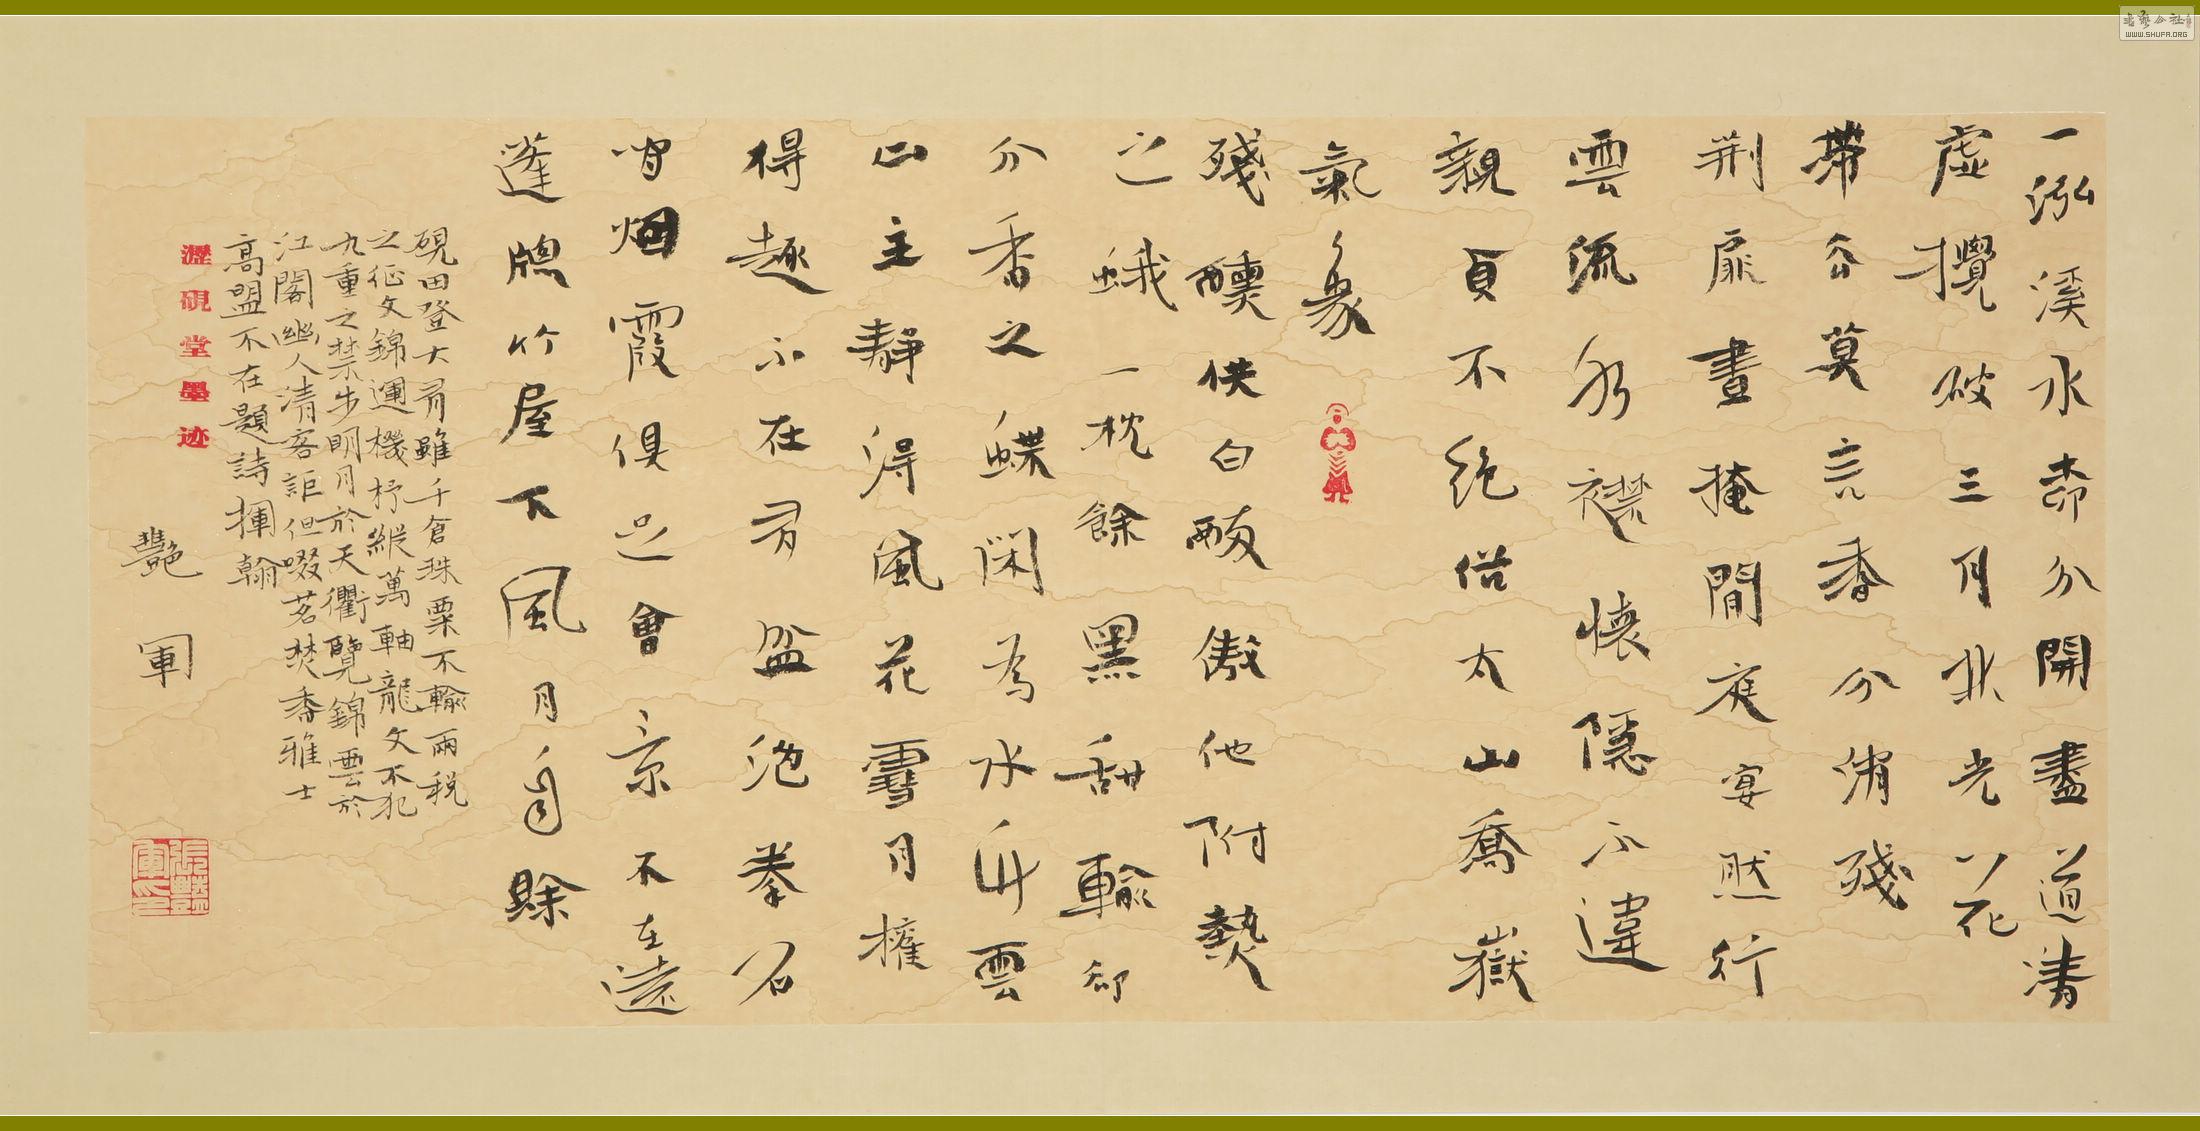 一泓溪水柰分開盡道清
虛攪破三月北光以花
帶谷莫言香分消殘
荆扉晝掩閒庭宴然行
雲流水襟懷隱不違
親貞不絕俗太山喬嶽
氣象
殘醺供白醉傲他附熱
之蛾一枕餘黑甜輸卻
分香之蝶閑為水竹雲
山主靜得風花雪月權
得趣不在多盆池拳石
間烟霞俱足會景不在遠
蓬牕竹屋下風月自賒
硯田登大有雖千倉珠粟不輸兩稅
之征文錦運機杼縱萬軸龍文不犯
九重之禁步明月於天衢覽錦雲於
江閣幽人清客詎但啜茗焚香雅士
高盟不在題詩揮翰
艷軍
瀝硯堂墨迹
張艷軍印
書藝公社
WWW.SHUFA.ORG